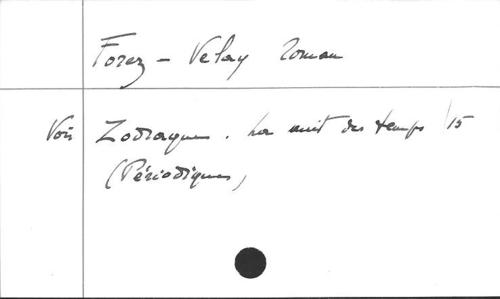 Forez - Velay Roman
Voir Zodiaque. La nuit des temps 15
(Périodiques)